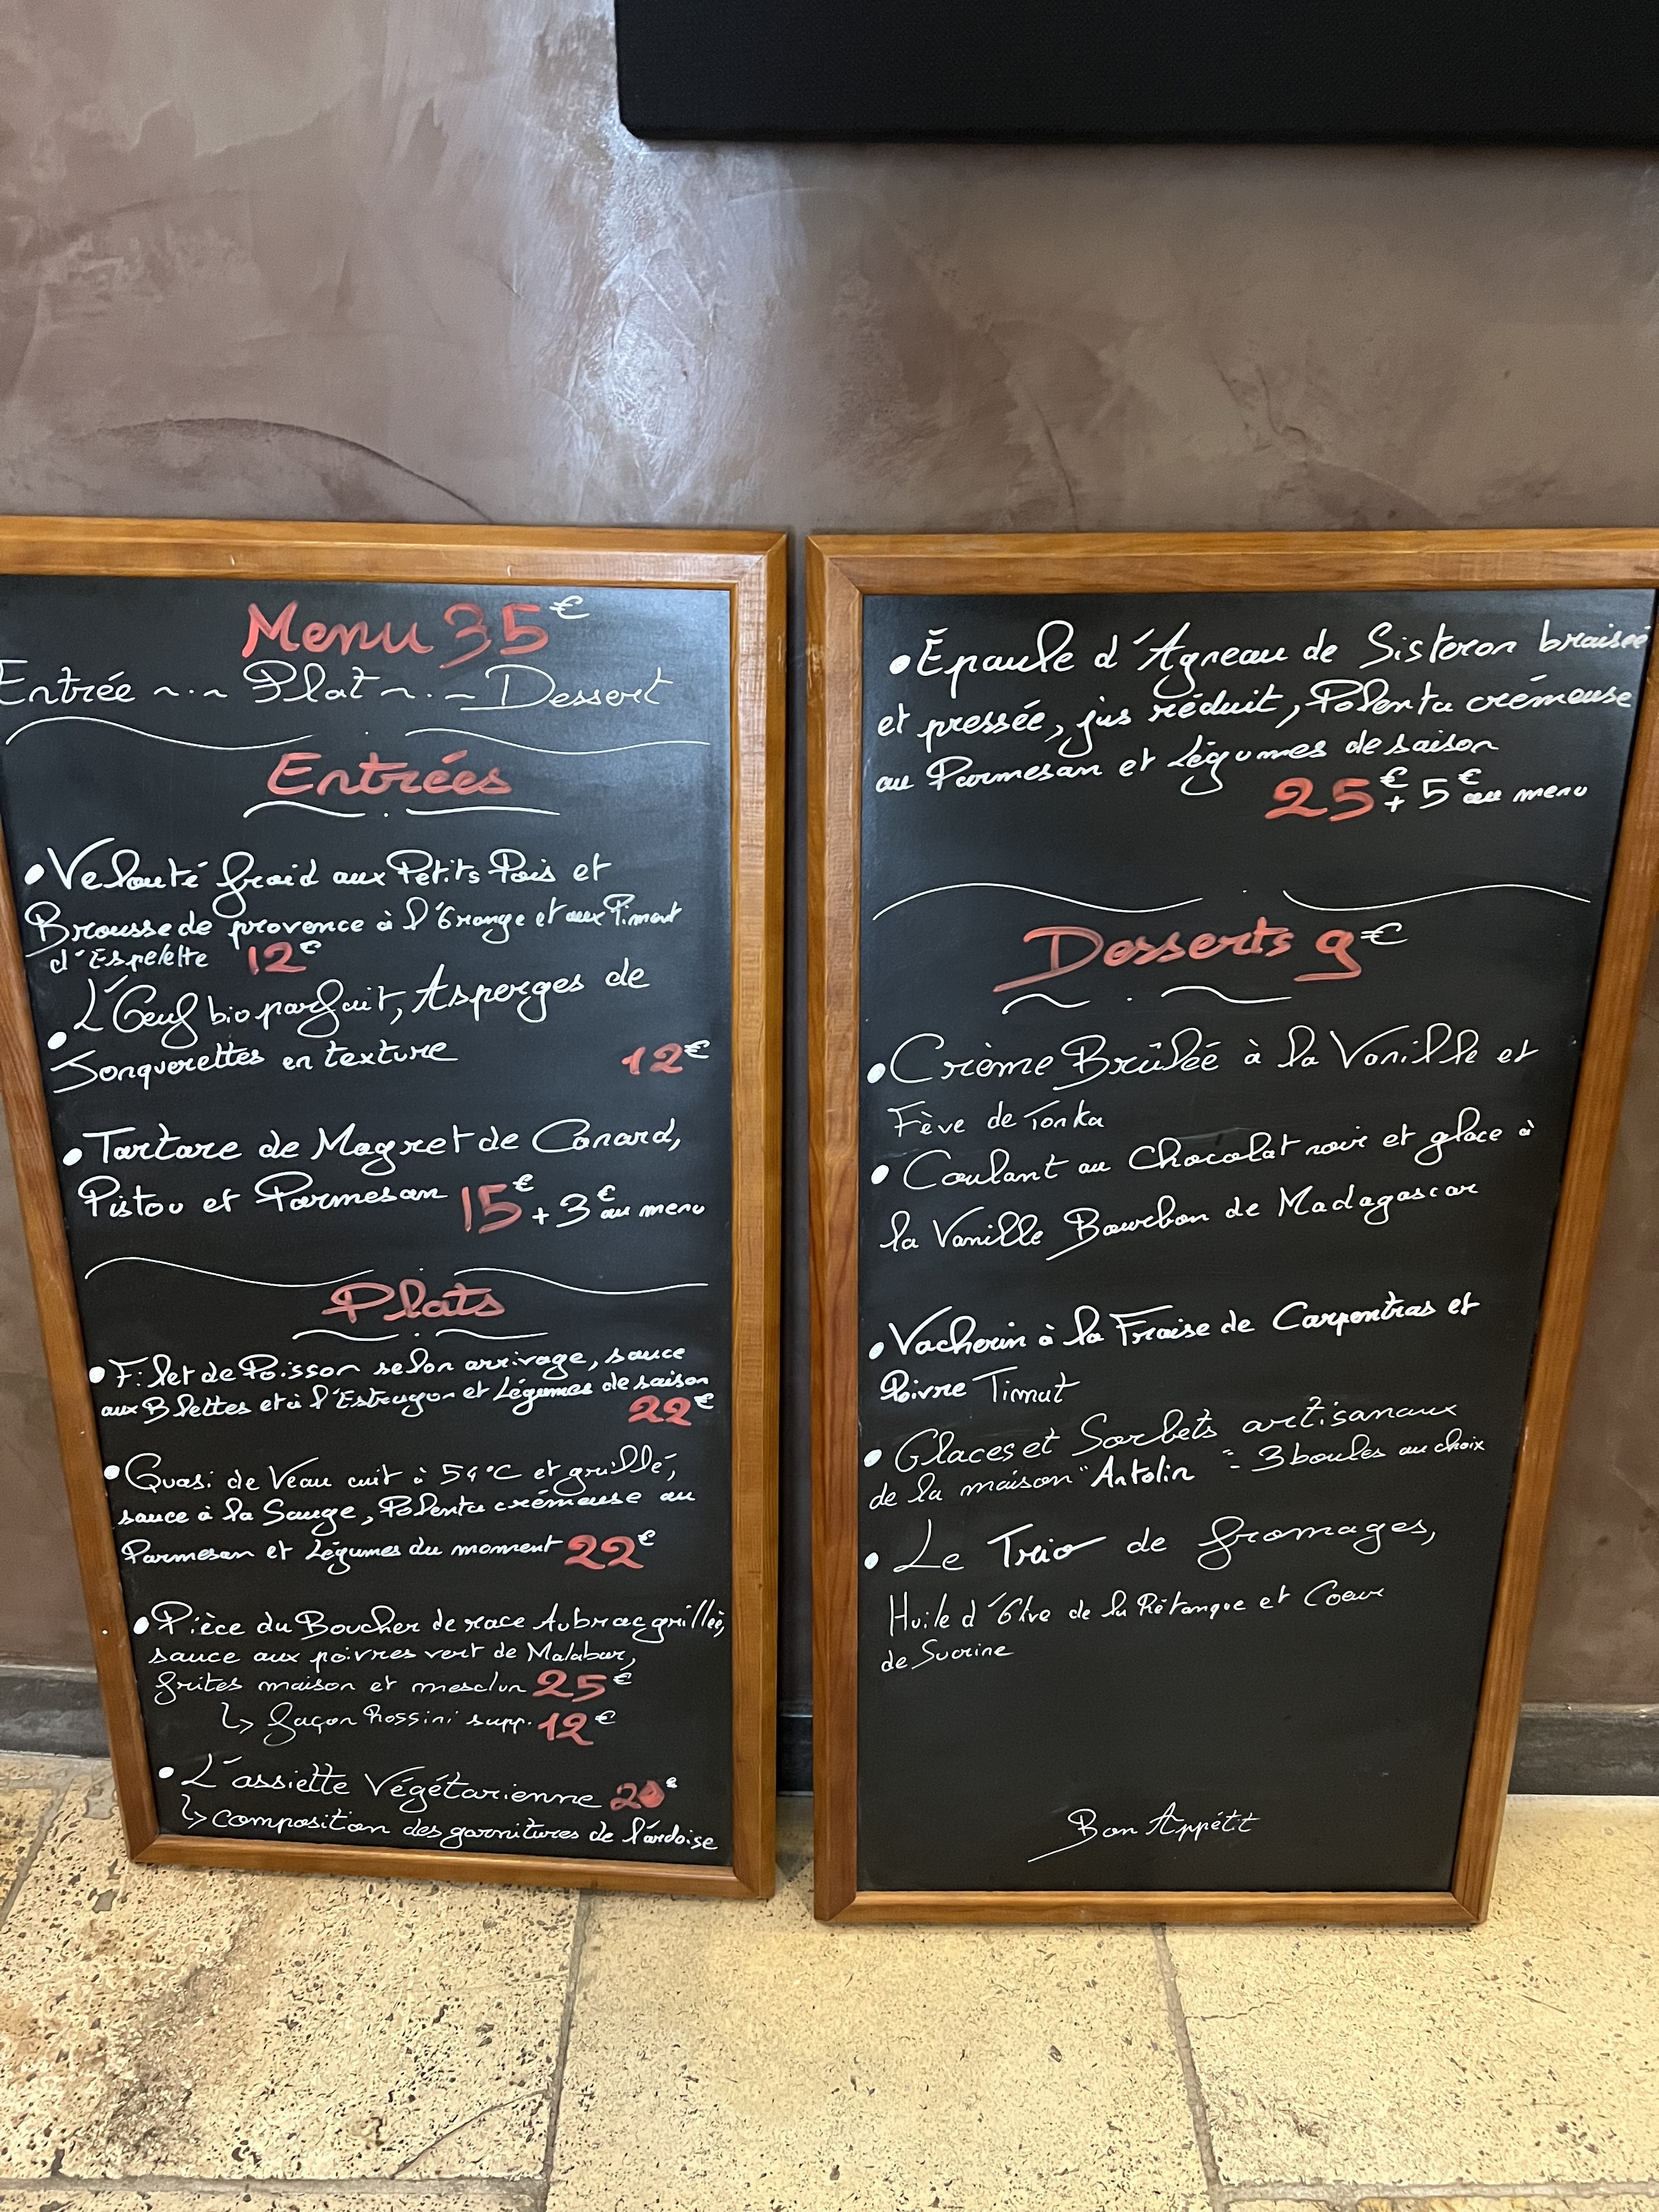 Menu 35€
Entrée ~.~ Plat ~.~ Dessert
Entrées
• Velouté froid aux Petits Pois et
Brousse de provence à l'Orange et aux Piment
d'Espelette 12€
• L'Oeuf bio parfait, Asperges de
Jonquerettes en texture 12€
• Tartare de Magret de Canard,
Pistou et Parmesan 15€ + 3€ au menu
Plats
• Filet de Poisson selon arrivage, sauce
aux Blettes et à l'Estragon et Légumes de saison
22€
• Quasi de Veau cuit à 54°C et grillé,
sauce à la Sauge, Polenta crémeuse au
Parmesan et Légumes du moment 22€
• Pièce du Boucher de race Aubrac grillée,
sauce aux poivres vert de Malabar,
frites maison et mesclun 25€
↳ façon Rossini supp. 12€
• L'assiette Végétarienne 20€
↳ composition des garnitures de l'ardoise
• Épaule d'Agneau de Sisteron braisée
et pressée, jus réduit, Polenta crémeuse
au Parmesan et Légumes de saison
25€ + 5€ au menu
Desserts 9€
• Crème Brûlée à la Vanille et
Fève de Tonka
• Coulant au Chocolat noir et glace à
la Vanille Bourbon de Madagascar
• Vacherin à la Fraise de Carpentras et
Poivre Timut
• Glaces et Sorbets artisanaux
de la maison "Antolin" - 3 boules au choix
• Le Trio de fromages,
Huile d'Olve de la Pétanque et Coeur
de Sucrine
Bon Appétit